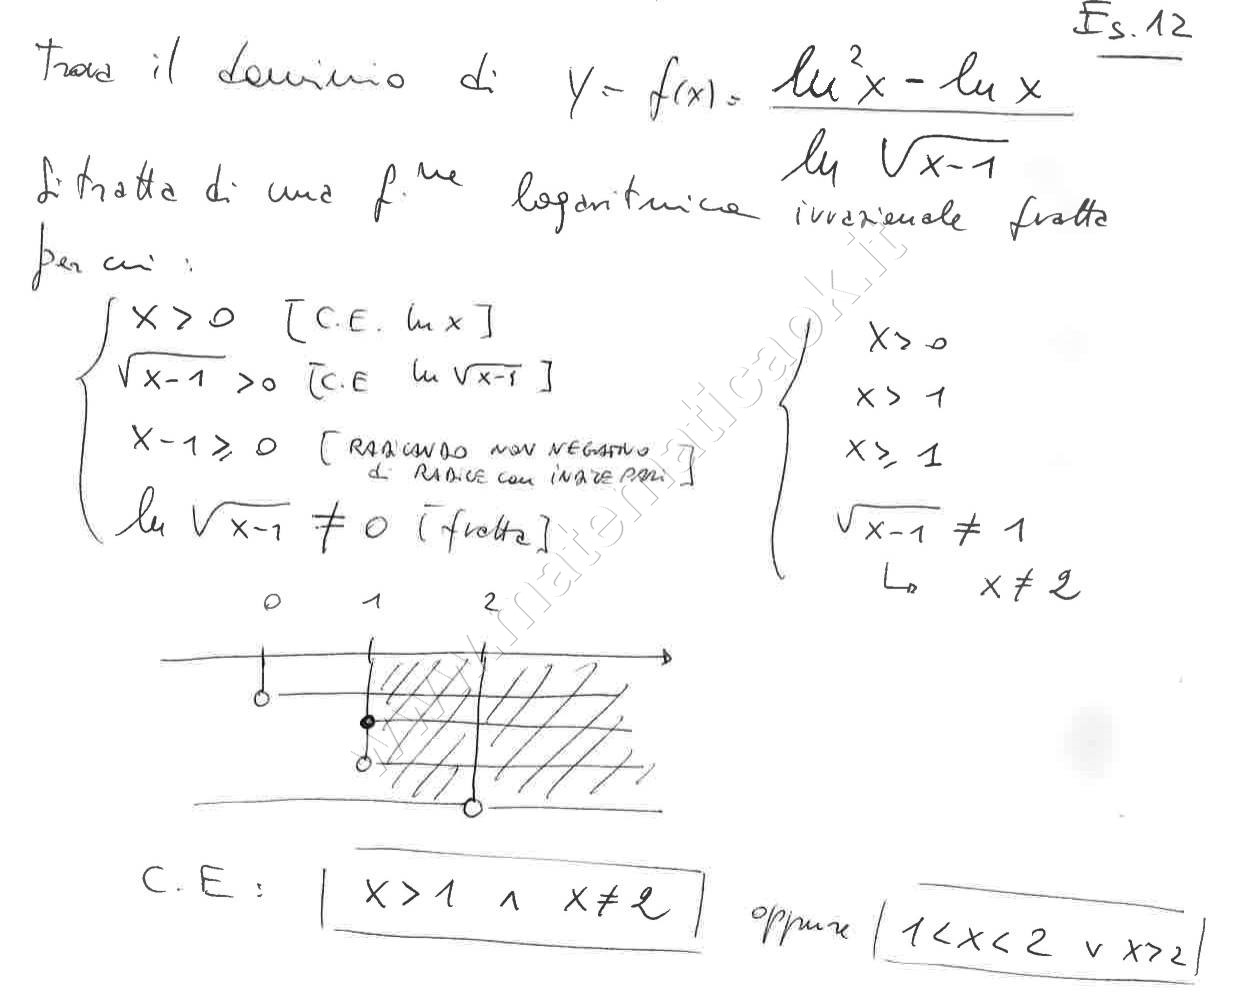 Es. 12
Trova il dominio di y = f(x) = (ln²x - ln x) / (ln √(x-1))
Si tratta di una f.ne logaritmica irrazionale fratta
per cui :
x > 0 [C.E. ln x]
√(x-1) > 0 [C.E ln √(x-1)]
x-1 ≥ 0 [RADICANDO NON NEGATIVO
di RADICE con INDICE PARI]
ln √(x-1) ≠ 0 [fratta]
x > 0
x > 1
x ≥ 1
√(x-1) ≠ 1
↳ x ≠ 2
0 1 2
C.E: x > 1 ∧ x ≠ 2 oppure 1 < x < 2 ∨ x > 2
www.matematicaok.it